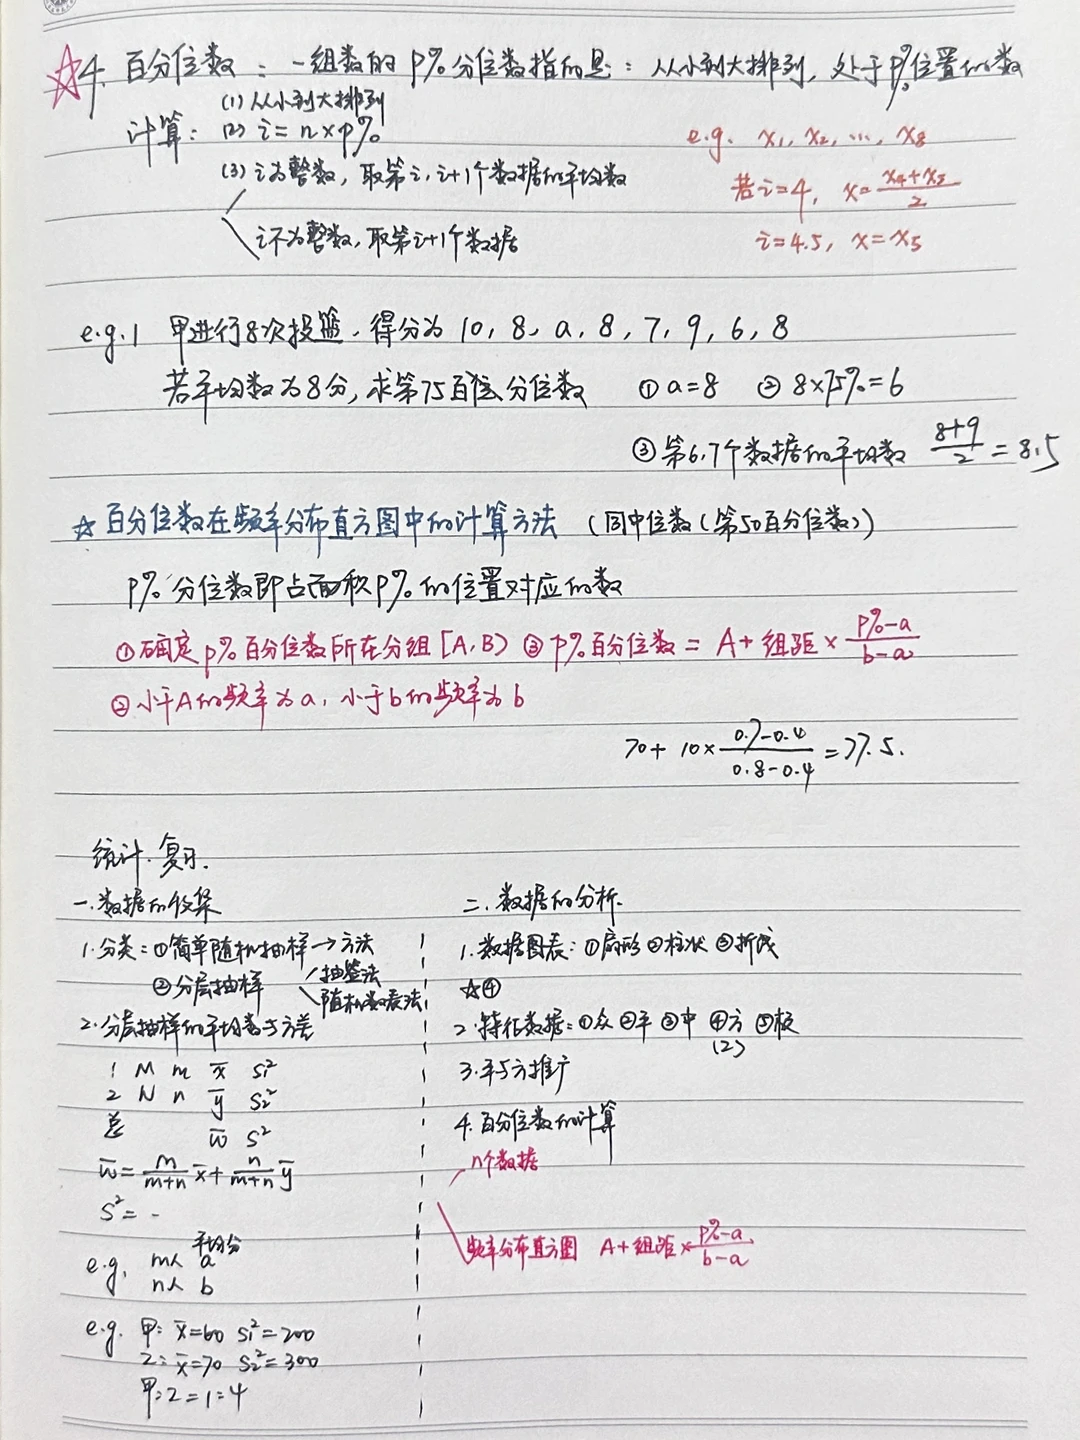 ☆4. 百分位数：一组数的p%分位数指的是：从小到大排列，处于p%位置的数
计算：(1) 从小到大排列
(2) i = n×p%
(3) i为整数，取第i，i+1个数据的平均数
i不为整数，取第i+1个数据
e.g. x₁, x₂, …, x₈
若i=4, x=(x₄+x₅)/2
i=4.5, x=x₅
e.g.1 甲进行8次投篮，得分为 10, 8, a, 8, 7, 9, 6, 8
若平均数为8分，求第75百位分位数 ① a=8 ② 8×75%=6
③ 第6,7个数据的平均数 (8+9)/2 = 8.5
☆ 百分位数在频率分布直方图中的计算方法 (同中位数(第50百分位数))
p%分位数即占面积p%的位置对应的数
① 确定p%百分位数所在分组[A,B) ③ p%百分位数 = A + 组距 × (p%-a)/(b-a)
② 小于A的频率为a, 小于b的频率为b
70 + 10× (0.7-0.4)/(0.8-0.4) = 77.5.
统计.复习.
一.数据的收集
1.分类：①简单随机抽样→方法
抽签法
随机数表法
②分层抽样
2.分层抽样的平均数与方差
1 M m x̄ S₁²
2 N n ȳ S₂²
总 w̄ S²
w̄ = m/(m+n) x̄ + n/(m+n) ȳ
S² = -
平均分
e.g. m人 a
n人 b
e.g. 甲: x̄=60 S₁²=200
乙: x̄=70 S₂²=300
甲:乙=1:4
二.数据的分析.
1.数据图表：①扇形 ②柱状 ③折线
☆④
2.特征数据：①众 ②平 ③中 ④方 ⑤极
(2)
3.平与方推广
4.百分位数的计算
n个数据
频率分布直方图 A+组距×(p%-a)/(b-a)